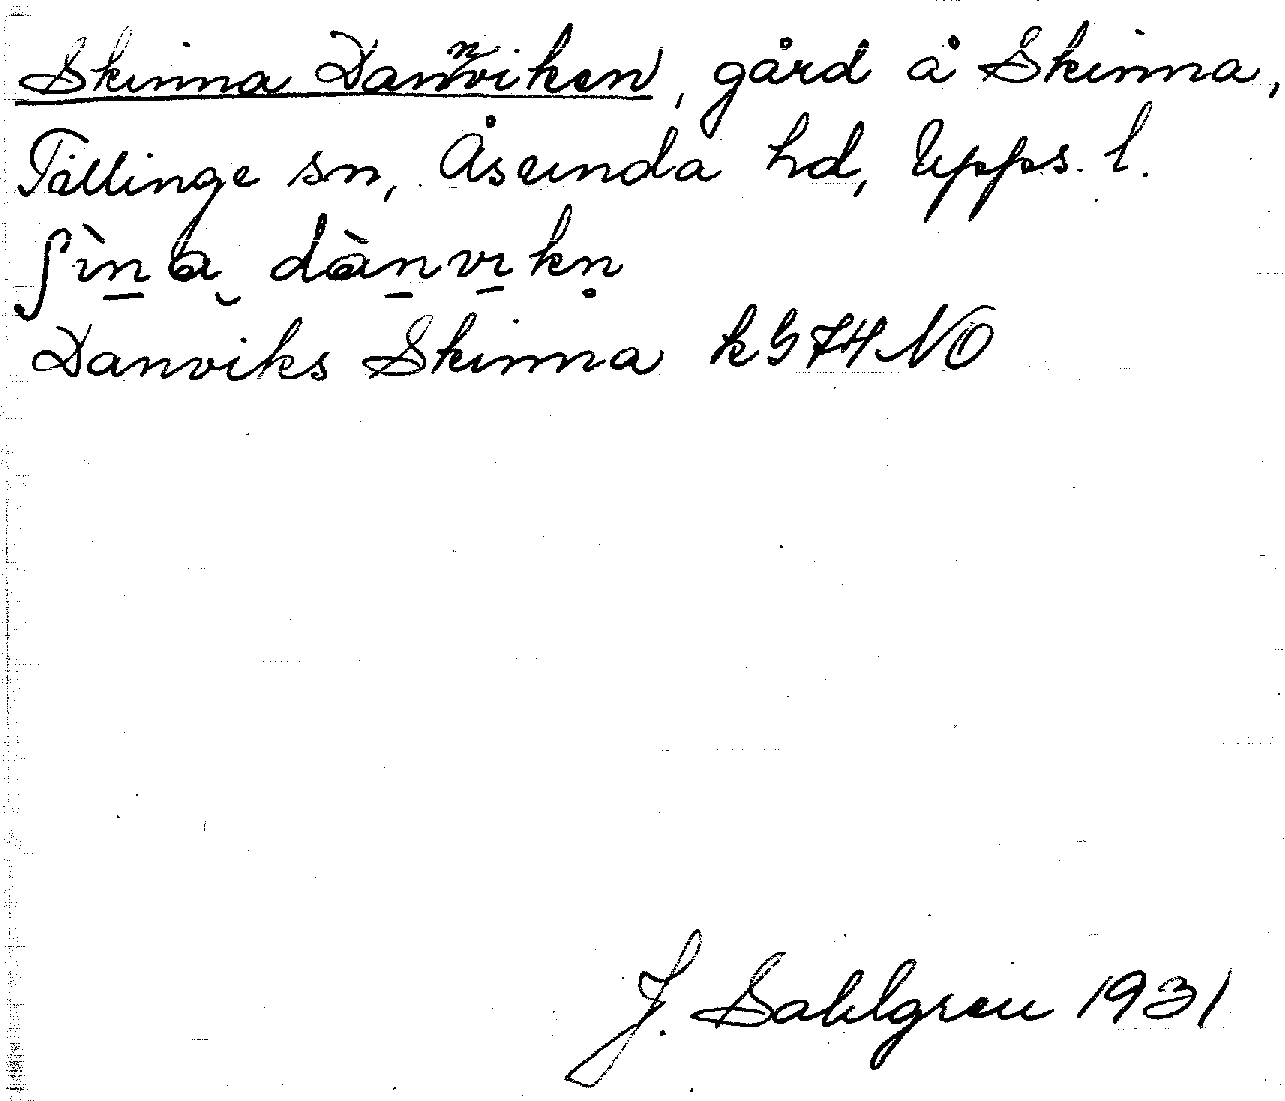 Skinna Dannviken, gård å Skinna,
Tillinge sn, Åsunda hd, Upps. l.
ʃìn̠a̮ dàn̠vɪ̠kn̥
Danviks Skinna k G 74 NO
J. Sahlgren 1931